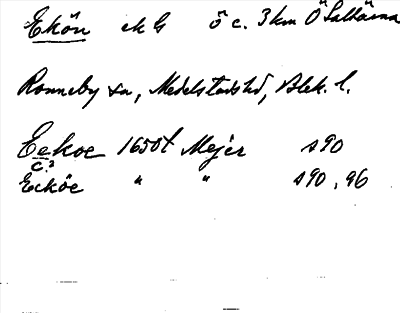 Ekön ek G ö c. 3 km Ö Saltärna
Ronneby sn, Medelstads hd, Blek. l.
Eekoe 1650t Mejer s90
c?
Eeköe " " s90, 96